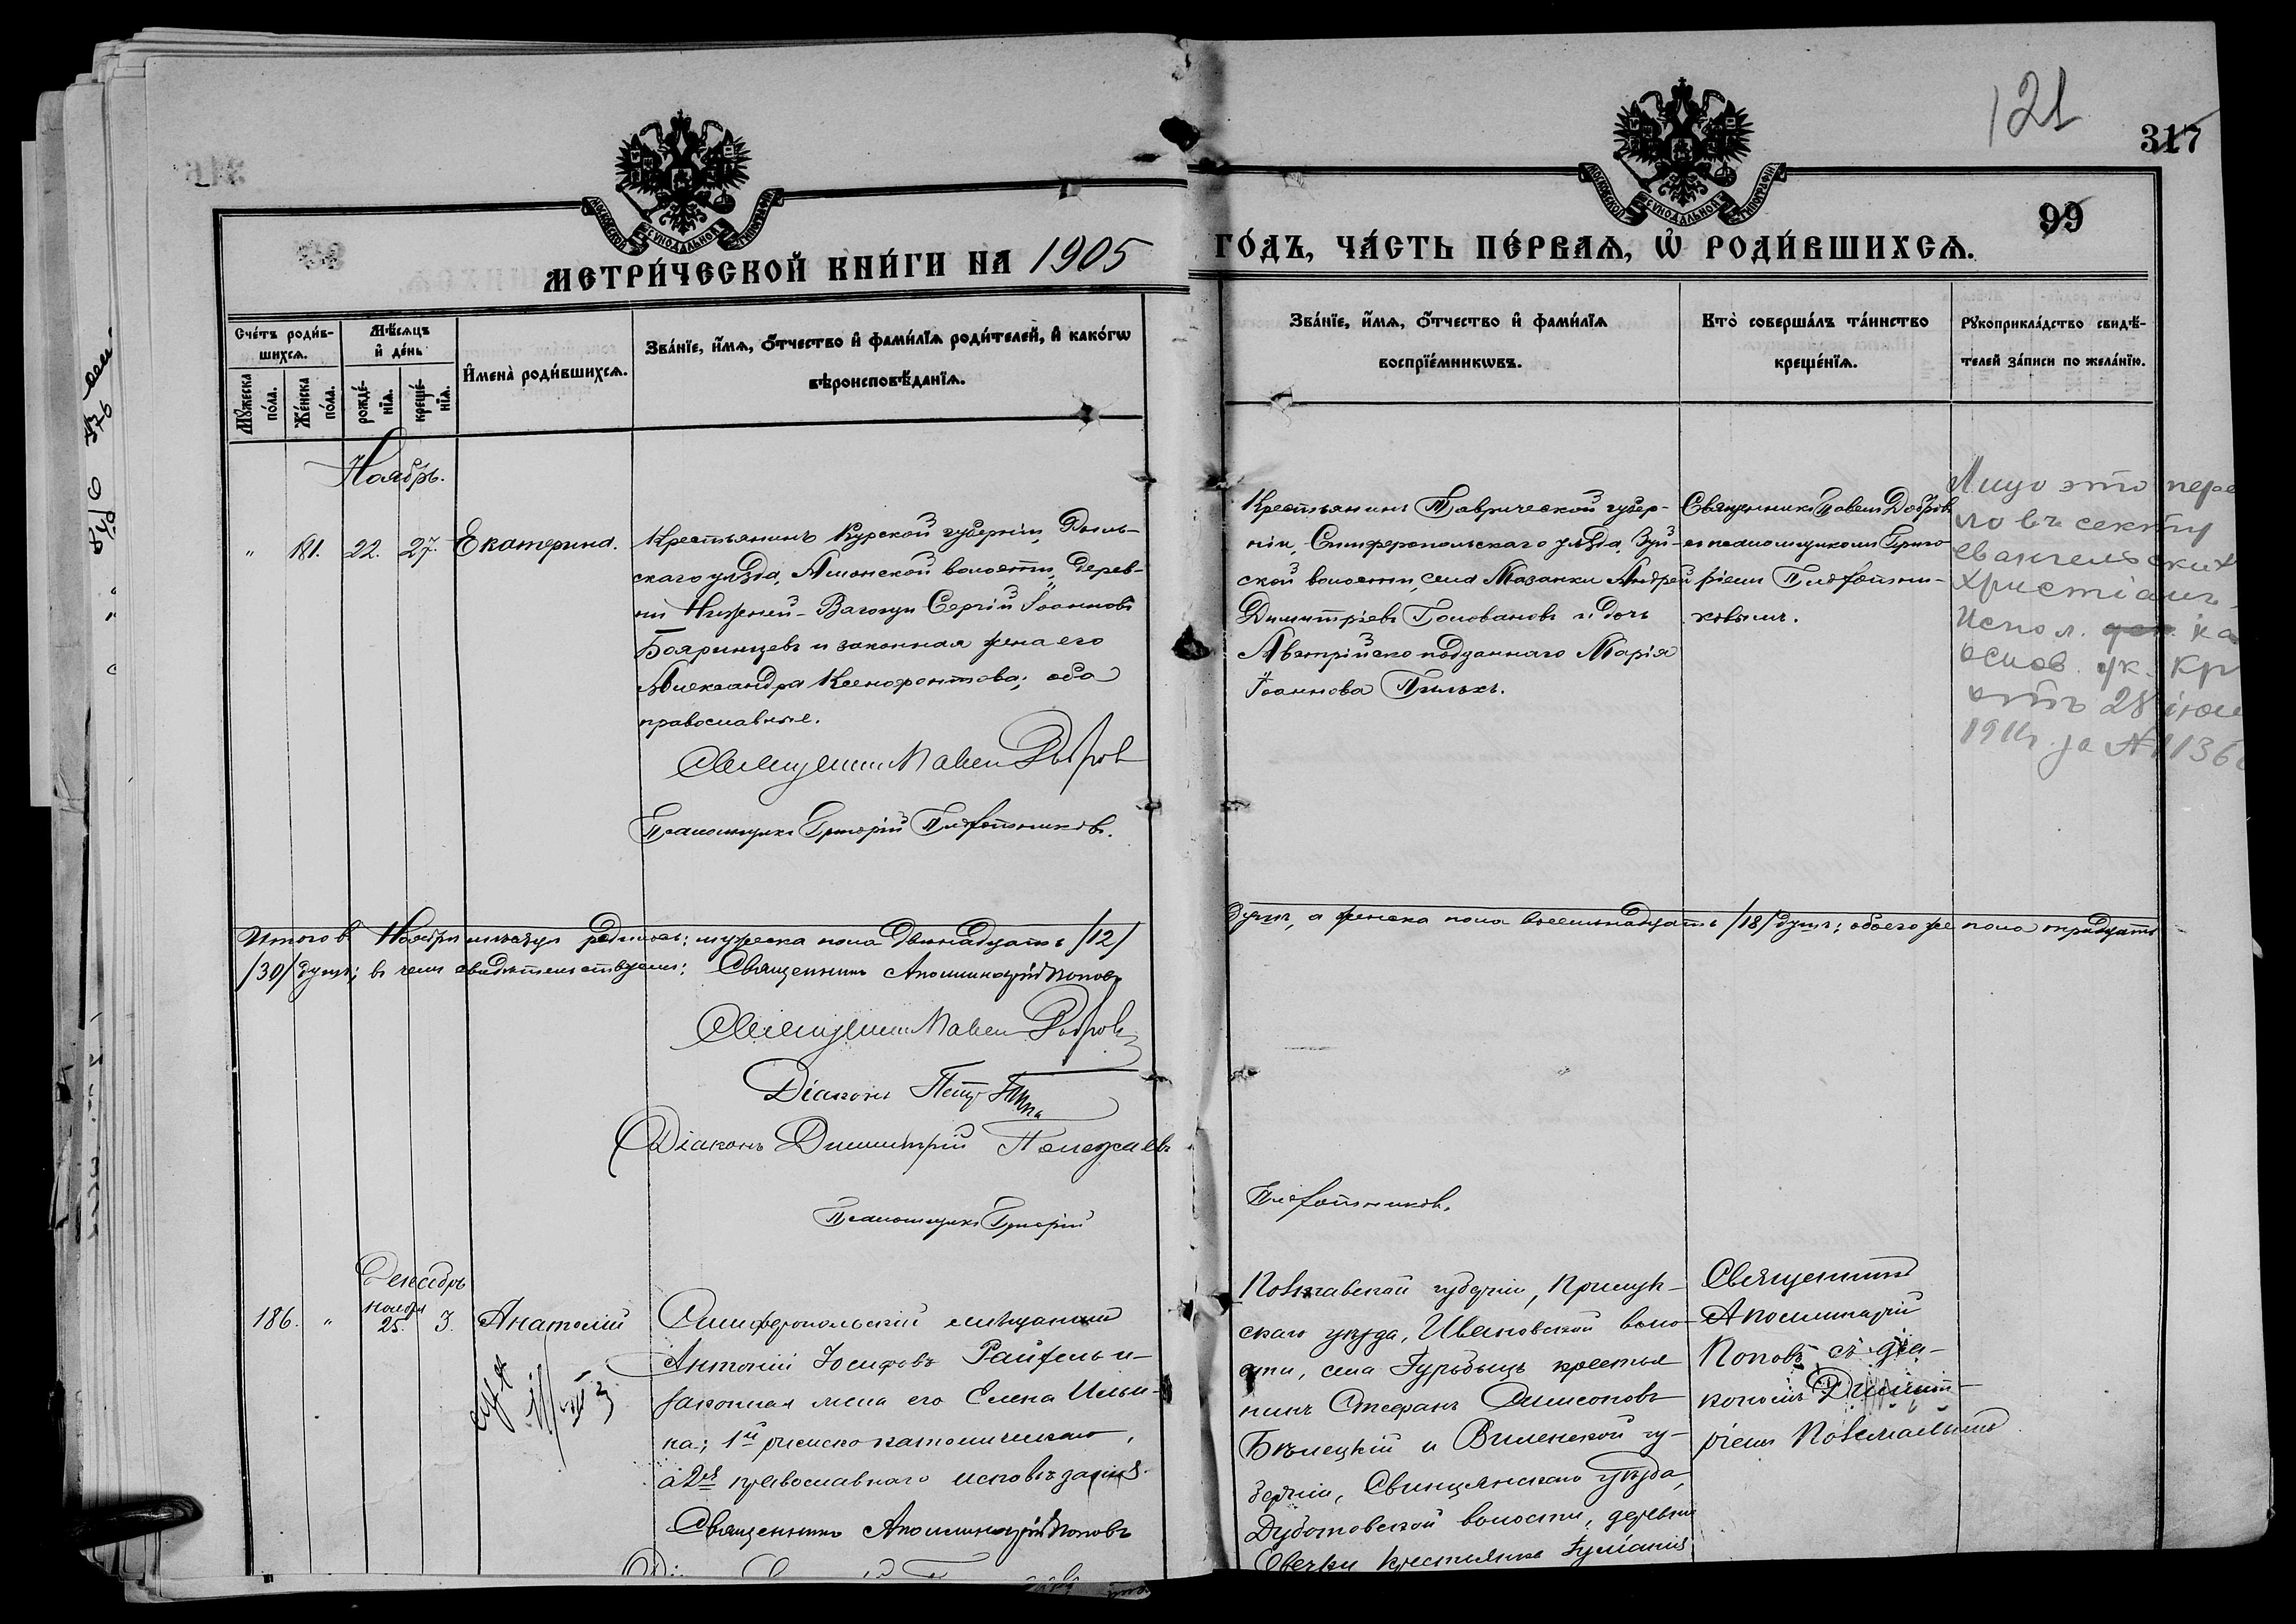 121
317
99
МОСКОВСКОЙ СѴНОДАЛЬНОЙ ТИПОГРАФІИ
МОСКОВСКОЙ СѴНОДАЛЬНОЙ ТИПОГРАФІИ
МЕТРИ́ЧЕСКОЙ КНИ́ГИ НА 1905
ГО́ДЪ, ЧА́СТЬ ПЕ́РВАѦ, Ѡ҆ РОДИ́ВШИХСѦ.
Сче́тъ роди́в-
шихсѧ.
Мꙋ́жеска по́ла.
Же́нска по́ла.
Мѣ́сѧцъ
и҆ де́нь
рожде́-
нїѧ.
креще́-
нїѧ.
И҆мена̀ роди́вшихсѧ.
Зва́нїе, и҆́мѧ, ѻ҆́тчество и҆ фами́лїѧ роди́телей, и҆ како́гѡ
вѣроисповѣ́данїѧ.
Зва́нїе, и҆́мѧ, ѻ҆́тчество и҆ фами́лїѧ
воспрїе́мникѡвъ.
Кто̀ соверша́лъ та́инство
креще́нїѧ.
Рꙋкоприкла́дство свидѣ́-
телей за́писи по жела́нїю.
Ноябрь.
" 181. 22. 27. Екатерина.
Крестьянинъ Курской губерніи, Дмль-
скаго уѣзда, Амонской волости, дерев-
ни Нижней-Вагогун Сергій Іоанновъ
Бояринцевъ и законная жена его
Александра Ксенофонтова; оба
православные.
Священникъ Павелъ Добров
Псаломщикъ Григорій Плотников.
Крестьянинъ Таврической губер-
ніи, Симферопольскаго уѣзда, Зуй-
ской волости, села Мазанки Андрей
Димитріевъ Головановъ и дочь
Австрійско подданнаго Марія
Іоаннова Пильхъ.
Священникъ Павелъ Добров
съ псаломщикомъ Григо
ріемъ Плотни-
ковымъ.
Лицо это пере
ло въ секту
евангельских
христіанъ.
Испол. на
основ. ук. Кр
отъ 28 іюл
1911г. за № 1136
Итого въ Ноябрѣ мѣсяцѣ родилось: мужеска пола двѣнадцать /12/
душъ, а женска пола восемнадцать /18/ душъ; обоего же пола тридцать
/30/ душъ; въ чемъ свидѣтельствуемъ: Священникъ Аполлинарій Поповъ
Священникъ Павелъ Добровъ
Діаконъ Петр
Діаконъ Димитрій Полежаевъ
Псаломщикъ Григорій
Плотников.
Декабрь
186. " Ноября 25. 3. Анатолій
Симферопольскій мѣщанинъ
Антоній Іосифовъ Райфель и
законная жена его Елена Ильи-
на; 1й римско-католическаго,
а 2я православнаго исповѣданія.
Священникъ Аполлинарій Поповъ
Полтавской губерніи, Прилук-
скаго уѣзда, Ивановской воло-
сти, села Гурбинцъ крестья
нинъ Стефанъ Симеоновъ
Бѣлецкій и Виленской гу-
берніи, Свинцянскаго уѣзда,
Дуботовской волости, деревни
Овечки крестьянка Іуліанія
Священникъ
Аполлинарій
Поповъ, съ діа-
кономъ Димит-
ріемъ Полежаевымъ